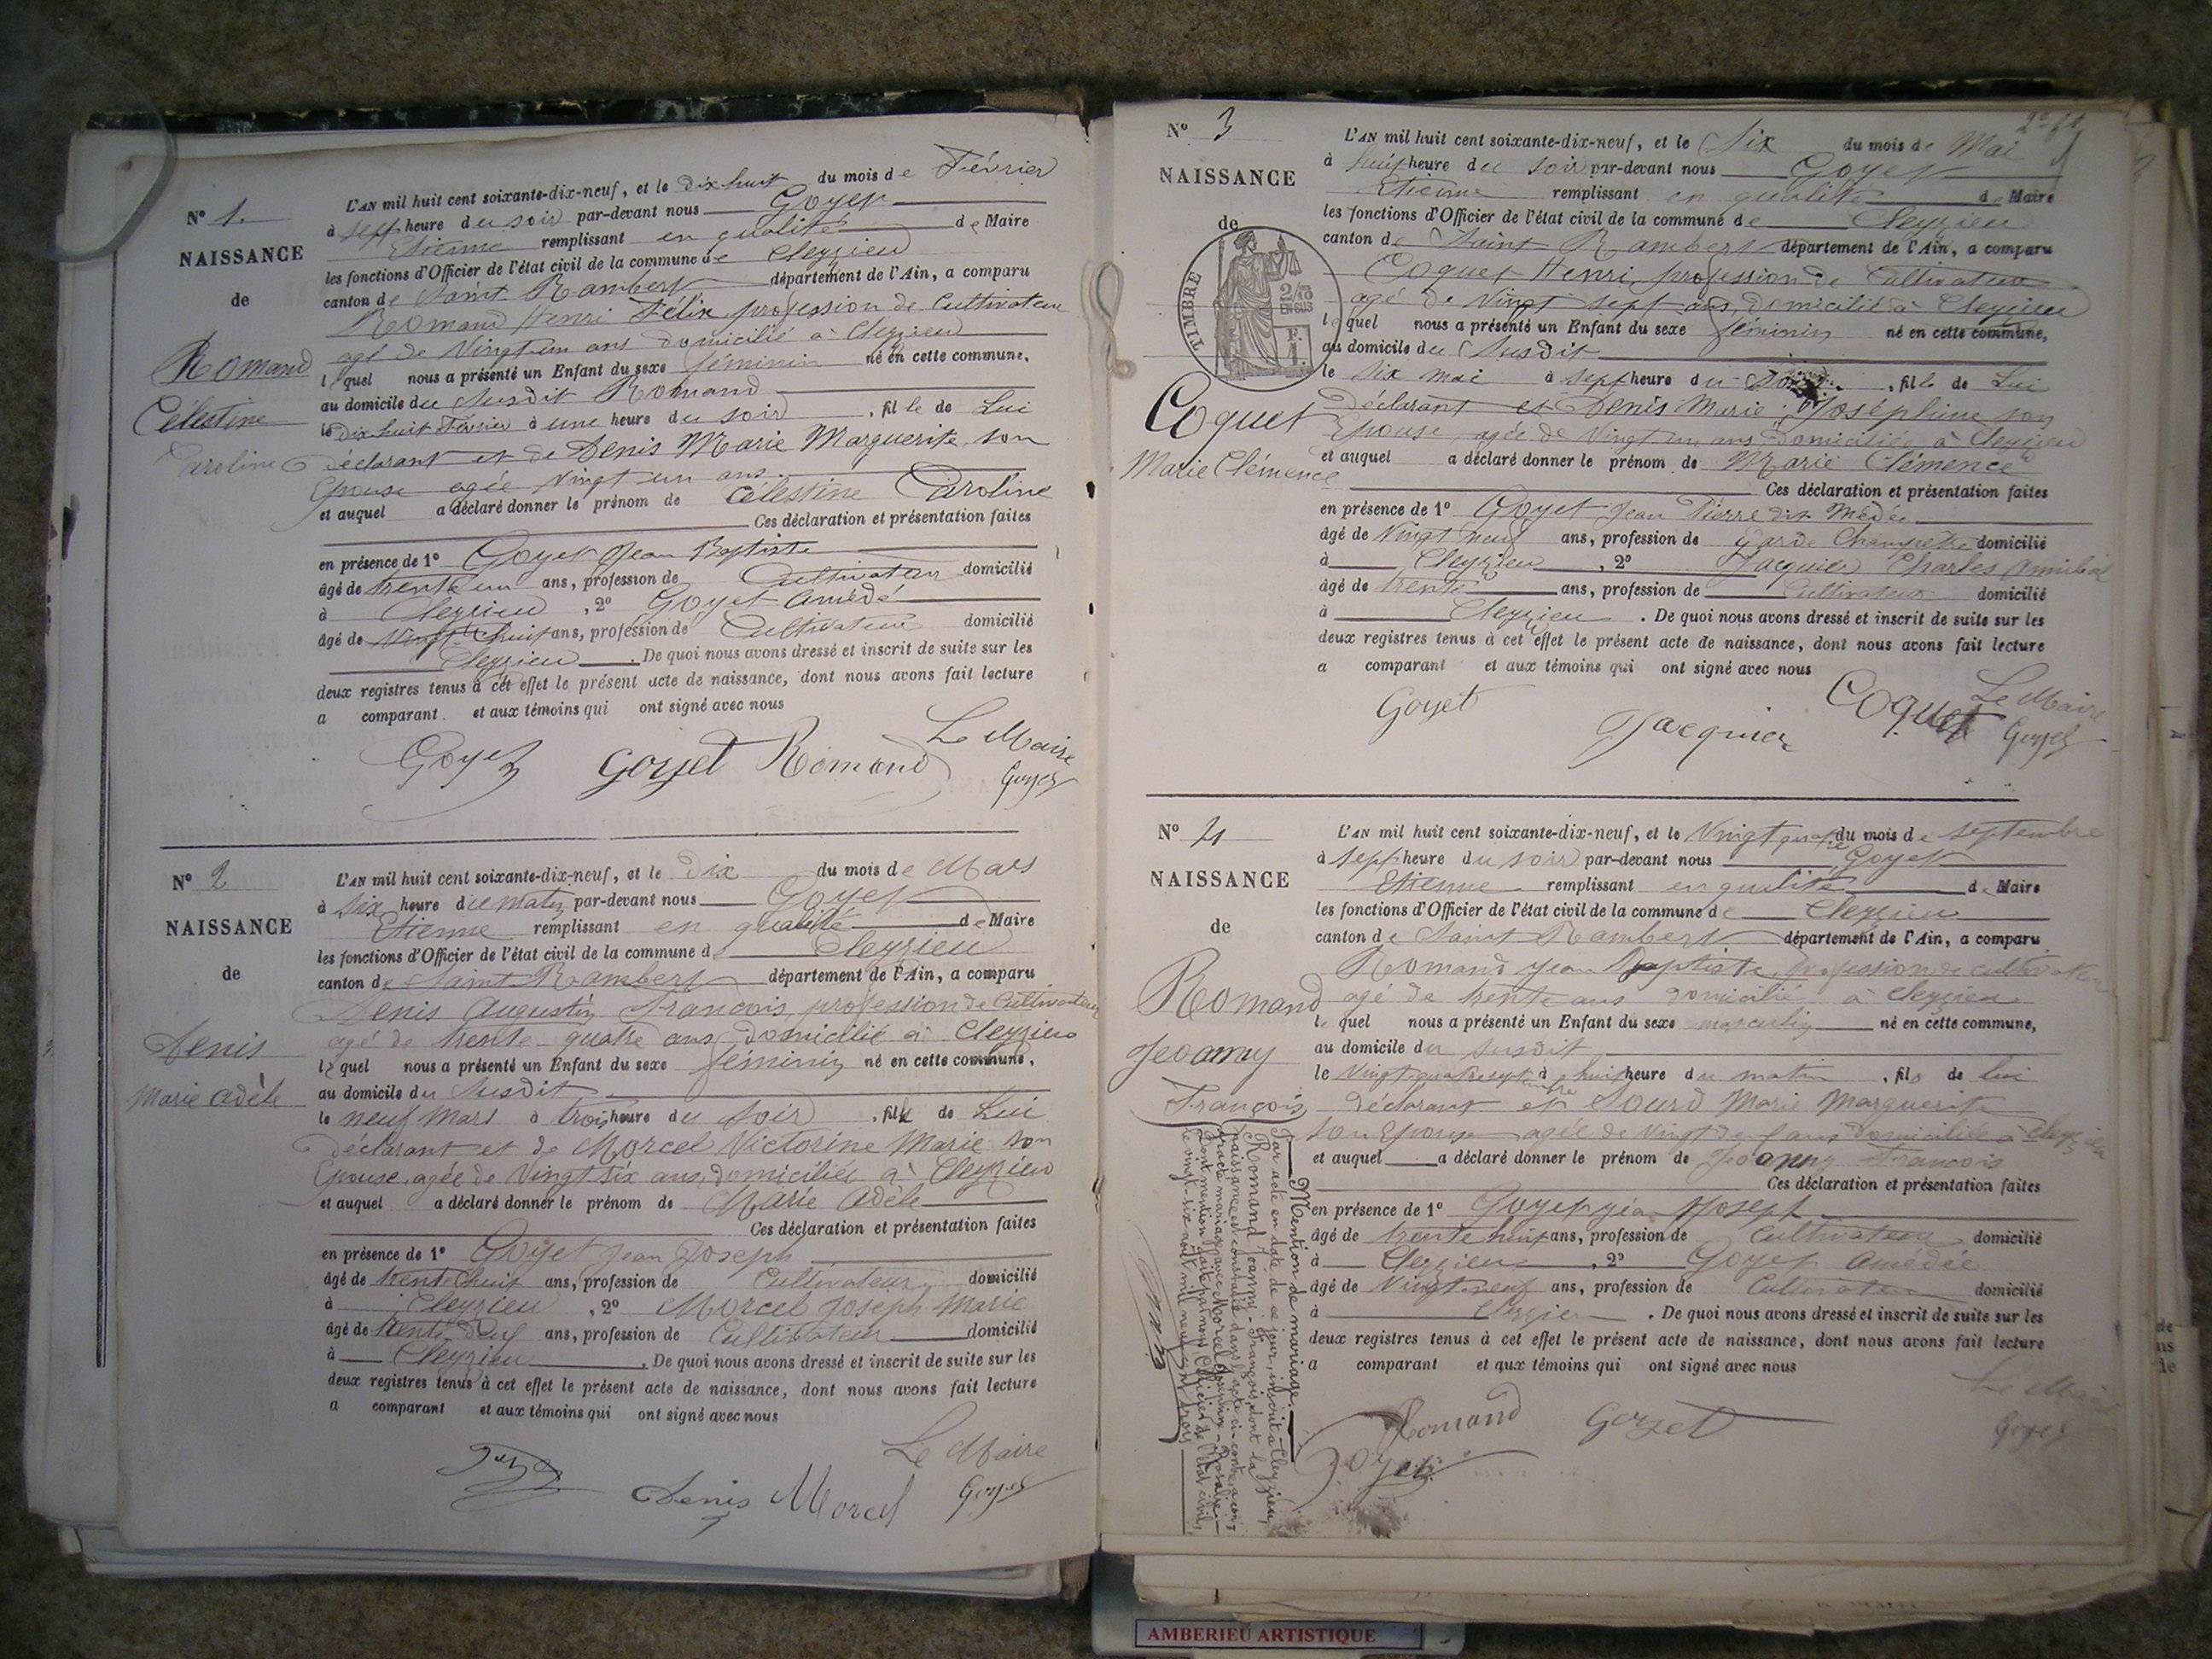 Nº 1.
NAISSANCE
de
Romand
Célestine
Caroline
L'AN mil huit cent soixante-dix-neuf, et le dix huit du mois de Février
à sept heure du soir par-devant nous Goyet
Etienne remplissant en qualité de Maire
les fonctions d'Officier de l'état civil de la commune de Cleyzieu
canton de Saint Rambert département de l'Ain, a comparu
Romand Henri Félix profession de Cultivateur
agé de Vingt un ans domicilié à Cleyzieu
lequel nous a présenté un Enfant du sexe féminin né en cette commune,
au domicile du Susdit Romand
le dix huit Février à une heure du soir, fille de Lui
déclarant et de Denis Marie Marguerite son
Epouse agée Vingt un ans
et auquel a déclaré donner le prénom de Célestine Caroline
Ces déclaration et présentation faites
en présence de 1º Goyet Jean Baptiste
âgé de trente un ans, profession de Cultivateur domicilié
à Cleyzieu, 2º Goyet Amédé
âgé de Vingt huit ans, profession de Cultivateur domicilié
Cleyzieu. De quoi nous avons dressé et inscrit de suite sur les
deux registres tenus à cet effet le présent acte de naissance, dont nous avons fait lecture
a comparant et aux témoins qui ont signé avec nous
Le Maire
Goyet Goyet Romand Goyet
Nº 2
NAISSANCE
de
Denis
Marie Adèle
L'AN mil huit cent soixante-dix-neuf, et le dix du mois de Mars
à six heure du matin par-devant nous Goyet
Etienne remplissant en qualité de Maire
les fonctions d'Officier de l'état civil de la commune d Cleyzieu
canton de Saint Rambert département de l'Ain, a comparu
Denis Augustin François, profession de Cultivateur
agé de trente quatre ans, domicilié à Cleyzieu
lequel nous a présenté un Enfant du sexe féminin né en cette commune,
au domicile du Susdit
le neuf Mars à trois heure du soir, fille de Lui
déclarant et de Morcel Victorine Marie son
Epouse, agée de Vingt six ans, domiciliée à Cleyzieu
et auquel a déclaré donner le prénom de Marie Adèle
Ces déclaration et présentation faites
en présence de 1º Goyet Jean Joseph
âgé de trente huit ans, profession de Cultivateur domicilié
à Cleyzieu, 2º Morcel Joseph Marie
âgé de trente ans, profession de Cultivateur domicilié
à Cleyzieu. De quoi nous avons dressé et inscrit de suite sur les
deux registres tenus à cet effet le présent acte de naissance, dont nous avons fait lecture
a comparant et aux témoins qui ont signé avec nous
Le Maire
Denis Morcel Goyet
Nº 3
NAISSANCE
de
TIMBRE
2/10
EN SUS
Coquet
Marie Clémence
L'AN mil huit cent soixante-dix-neuf, et le Six du mois de Mai
à huit heure du soir par-devant nous Goyet
Etienne remplissant en qualité de Maire
les fonctions d'Officier de l'état civil de la commune de Cleyzieu
canton de Saint Rambert département de l'Ain, a comparu
Coquet Henri, profession de Cultivateur
agé de Vingt sept ans, domicilié à Cleyzieu
lequel nous a présenté un Enfant du sexe féminin né en cette commune,
au domicile du Susdit
le six mai à sept heure du soir, fille de Lui
déclarant et Denis Marie Joséphine son
Epouse, agée de Vingt un ans domiciliée à Cleyzieu
et auquel a déclaré donner le prénom de Marie Clémence
Ces déclaration et présentation faites
en présence de 1º Goyet Jean Pierre dit Médée
âgé de Vingt neuf ans, profession de Garde Champetre domicilié
à Cleyzieu, 2º Jacquier Charles Annibal
âgé de trente ans, profession de Cultivateur domicilié
à Cleyzieu. De quoi nous avons dressé et inscrit de suite sur les
deux registres tenus à cet effet le présent acte de naissance, dont nous avons fait lecture
a comparant et aux témoins qui ont signé avec nous
Goyet Jacquier Coquet Le Maire
Goyet
Nº 4
NAISSANCE
de
Romand
Joanny
François
L'AN mil huit cent soixante-dix-neuf, et le Vingt quatre du mois de septembre
à sept heure du soir par-devant nous Goyet
Etienne remplissant en qualité de Maire
les fonctions d'Officier de l'état civil de la commune de Cleyzieu
canton de Saint Rambert département de l'Ain, a comparu
Romand Jean Baptiste, profession de cultivateur
agé de trente ans domicilié à Cleyzieu
lequel nous a présenté un Enfant du sexe masculin né en cette commune,
au domicile du susdit
le Vingt quatre septembre à huit heure du matin, fils de lui
déclarant et Sourd Marie Marguerite
son Epouse agée de Vingt ans domiciliée à Cleyzieu
et auquel a déclaré donner le prénom de Joanny François
Ces déclaration et présentation faites
en présence de 1º Goyet Jean Joseph
âgé de trente huit ans, profession de Cultivateur domicilié
à Cleyzieu, 2º Goyet Amédée
âgé de Vingt neuf ans, profession de Cultivateur domicilié
à Cleyzieu. De quoi nous avons dressé et inscrit de suite sur les
deux registres tenus à cet effet le présent acte de naissance, dont nous avons fait lecture
a comparant et aux témoins qui ont signé avec nous
Le Maire
Romand Goyet Goyet
Goyet
Mention de mariage.
Par acte en date de ce jour, inscrit à Cleyzieu,
Romand Joanny-François, dont la
naissance est constatée dans l'acte ci-contre a con-
tracté mariage avec Morcel Joséphine-Rosalie
Dont mention faite par nous Officier de l'état civil,
le vingt-six août mil neuf cent trois
AMBERIEU ARTISTIQUE